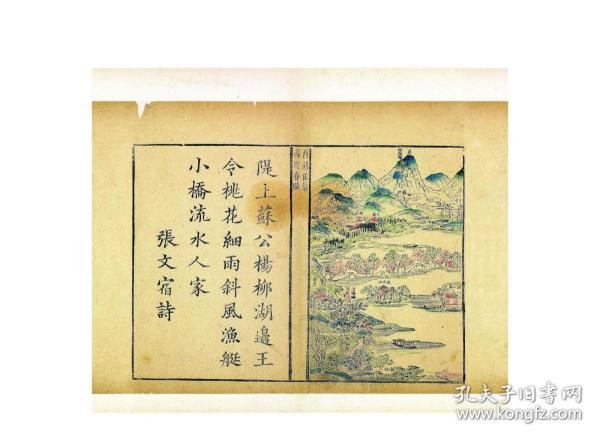 隄上蘇公楊柳湖邊王
令桃花細雨斜風漁艇
小橋流水人家
張文宿詩
孔夫子旧书网
www.kongfz.com